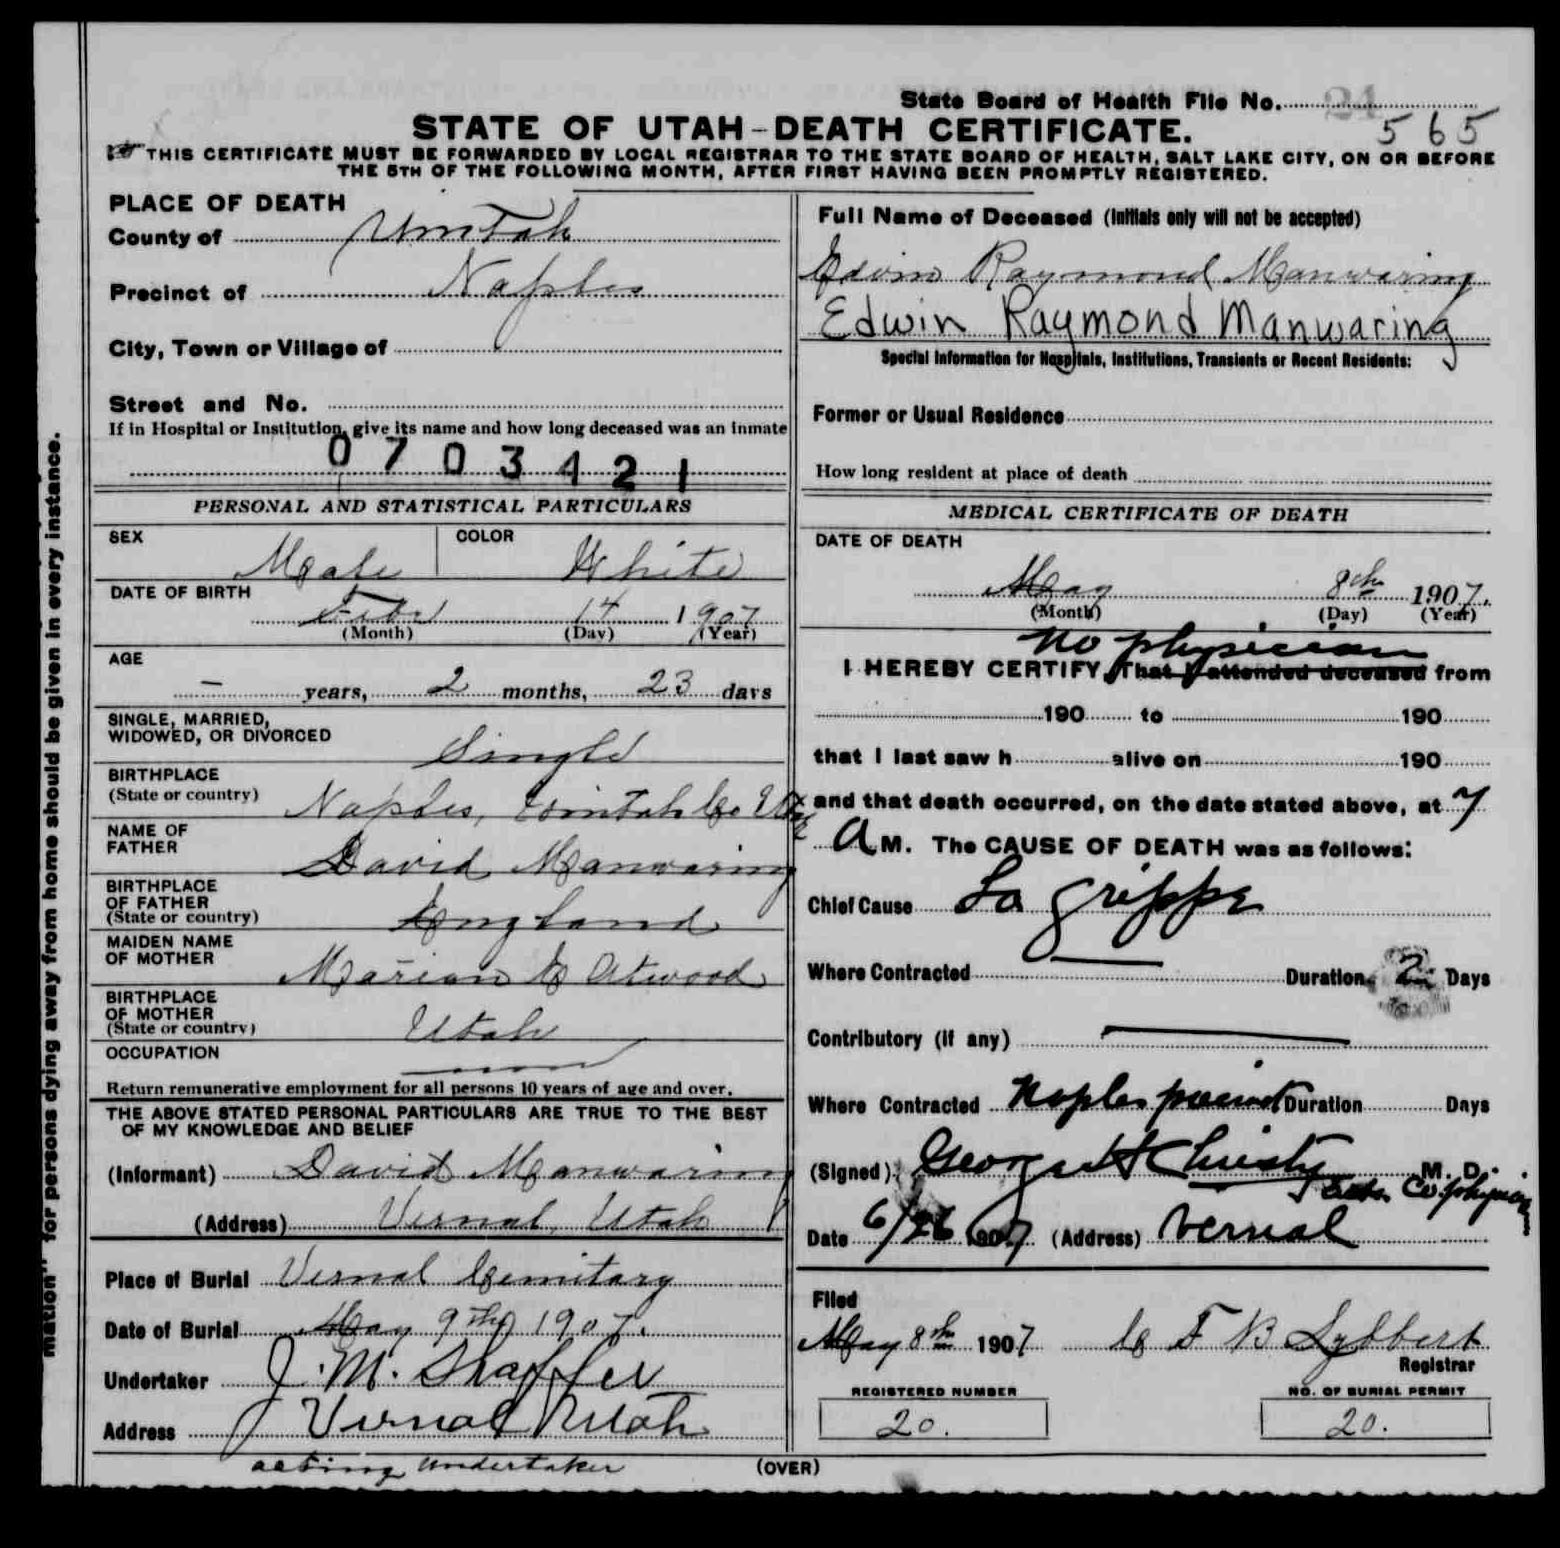 State Board of Health File No. 24
565
STATE OF UTAH-DEATH CERTIFICATE.
THIS CERTIFICATE MUST BE FORWARDED BY LOCAL REGISTRAR TO THE STATE BOARD OF HEALTH, SALT LAKE CITY, ON OR BEFORE
THE 5TH OF THE FOLLOWING MONTH, AFTER FIRST HAVING BEEN PROMPTLY REGISTERED.
PLACE OF DEATH
County of Uintah
Precinct of Naples
City, Town or Village of
Street and No.
If in Hospital or Institution, give its name and how long deceased was an inmate
0703421
PERSONAL AND STATISTICAL PARTICULARS
SEX Male COLOR White
DATE OF BIRTH
Febr 14 1907
(Month) (Day) (Year)
AGE
- years, 2 months, 23 days
SINGLE, MARRIED,
WIDOWED, OR DIVORCED Single
BIRTHPLACE
(State or country) Naples, Uintah Co Utah
NAME OF
FATHER David Manwaring
BIRTHPLACE
OF FATHER
(State or country) England
MAIDEN NAME
OF MOTHER Marian E Atwood
BIRTHPLACE
OF MOTHER
(State or country) Utah
OCCUPATION
Return remunerative employment for all persons 10 years of age and over.
THE ABOVE STATED PERSONAL PARTICULARS ARE TRUE TO THE BEST
OF MY KNOWLEDGE AND BELIEF
(Informant) David Manwaring
(Address) Vernal, Utah
Place of Burial Vernal Cemitary
Date of Burial May 9th 1907.
Undertaker J. M. Shaffer
Address Vernal Utah
acting undertaker
(OVER)
Full Name of Deceased (Initials only will not be accepted)
Edwin Raymond Manwaring
Edwin Raymond Manwaring
Special Information for Hospitals, Institutions, Transients or Recent Residents:
Former or Usual Residence
How long resident at place of death
MEDICAL CERTIFICATE OF DEATH
DATE OF DEATH
May 8th 1907.
(Month) (Day) (Year)
no physician
I HEREBY CERTIFY, That I attended deceased from
190 to 190
that I last saw h alive on 190
and that death occurred, on the date stated above, at 7
A M. The CAUSE OF DEATH was as follows:
Chief Cause La Grippe
Where Contracted Duration 2 Days
Contributory (if any)
Where Contracted Naples precinct Duration Days
(Signed) George H Christy M. D.
Co physician
Date 6/26 1907 (Address) Vernal
Filed
May 8th 1907 C F B Lybbert
Registrar
REGISTERED NUMBER NO. OF BURIAL PERMIT
20. 20.
mation" for persons dying away from home should be given in every instance.